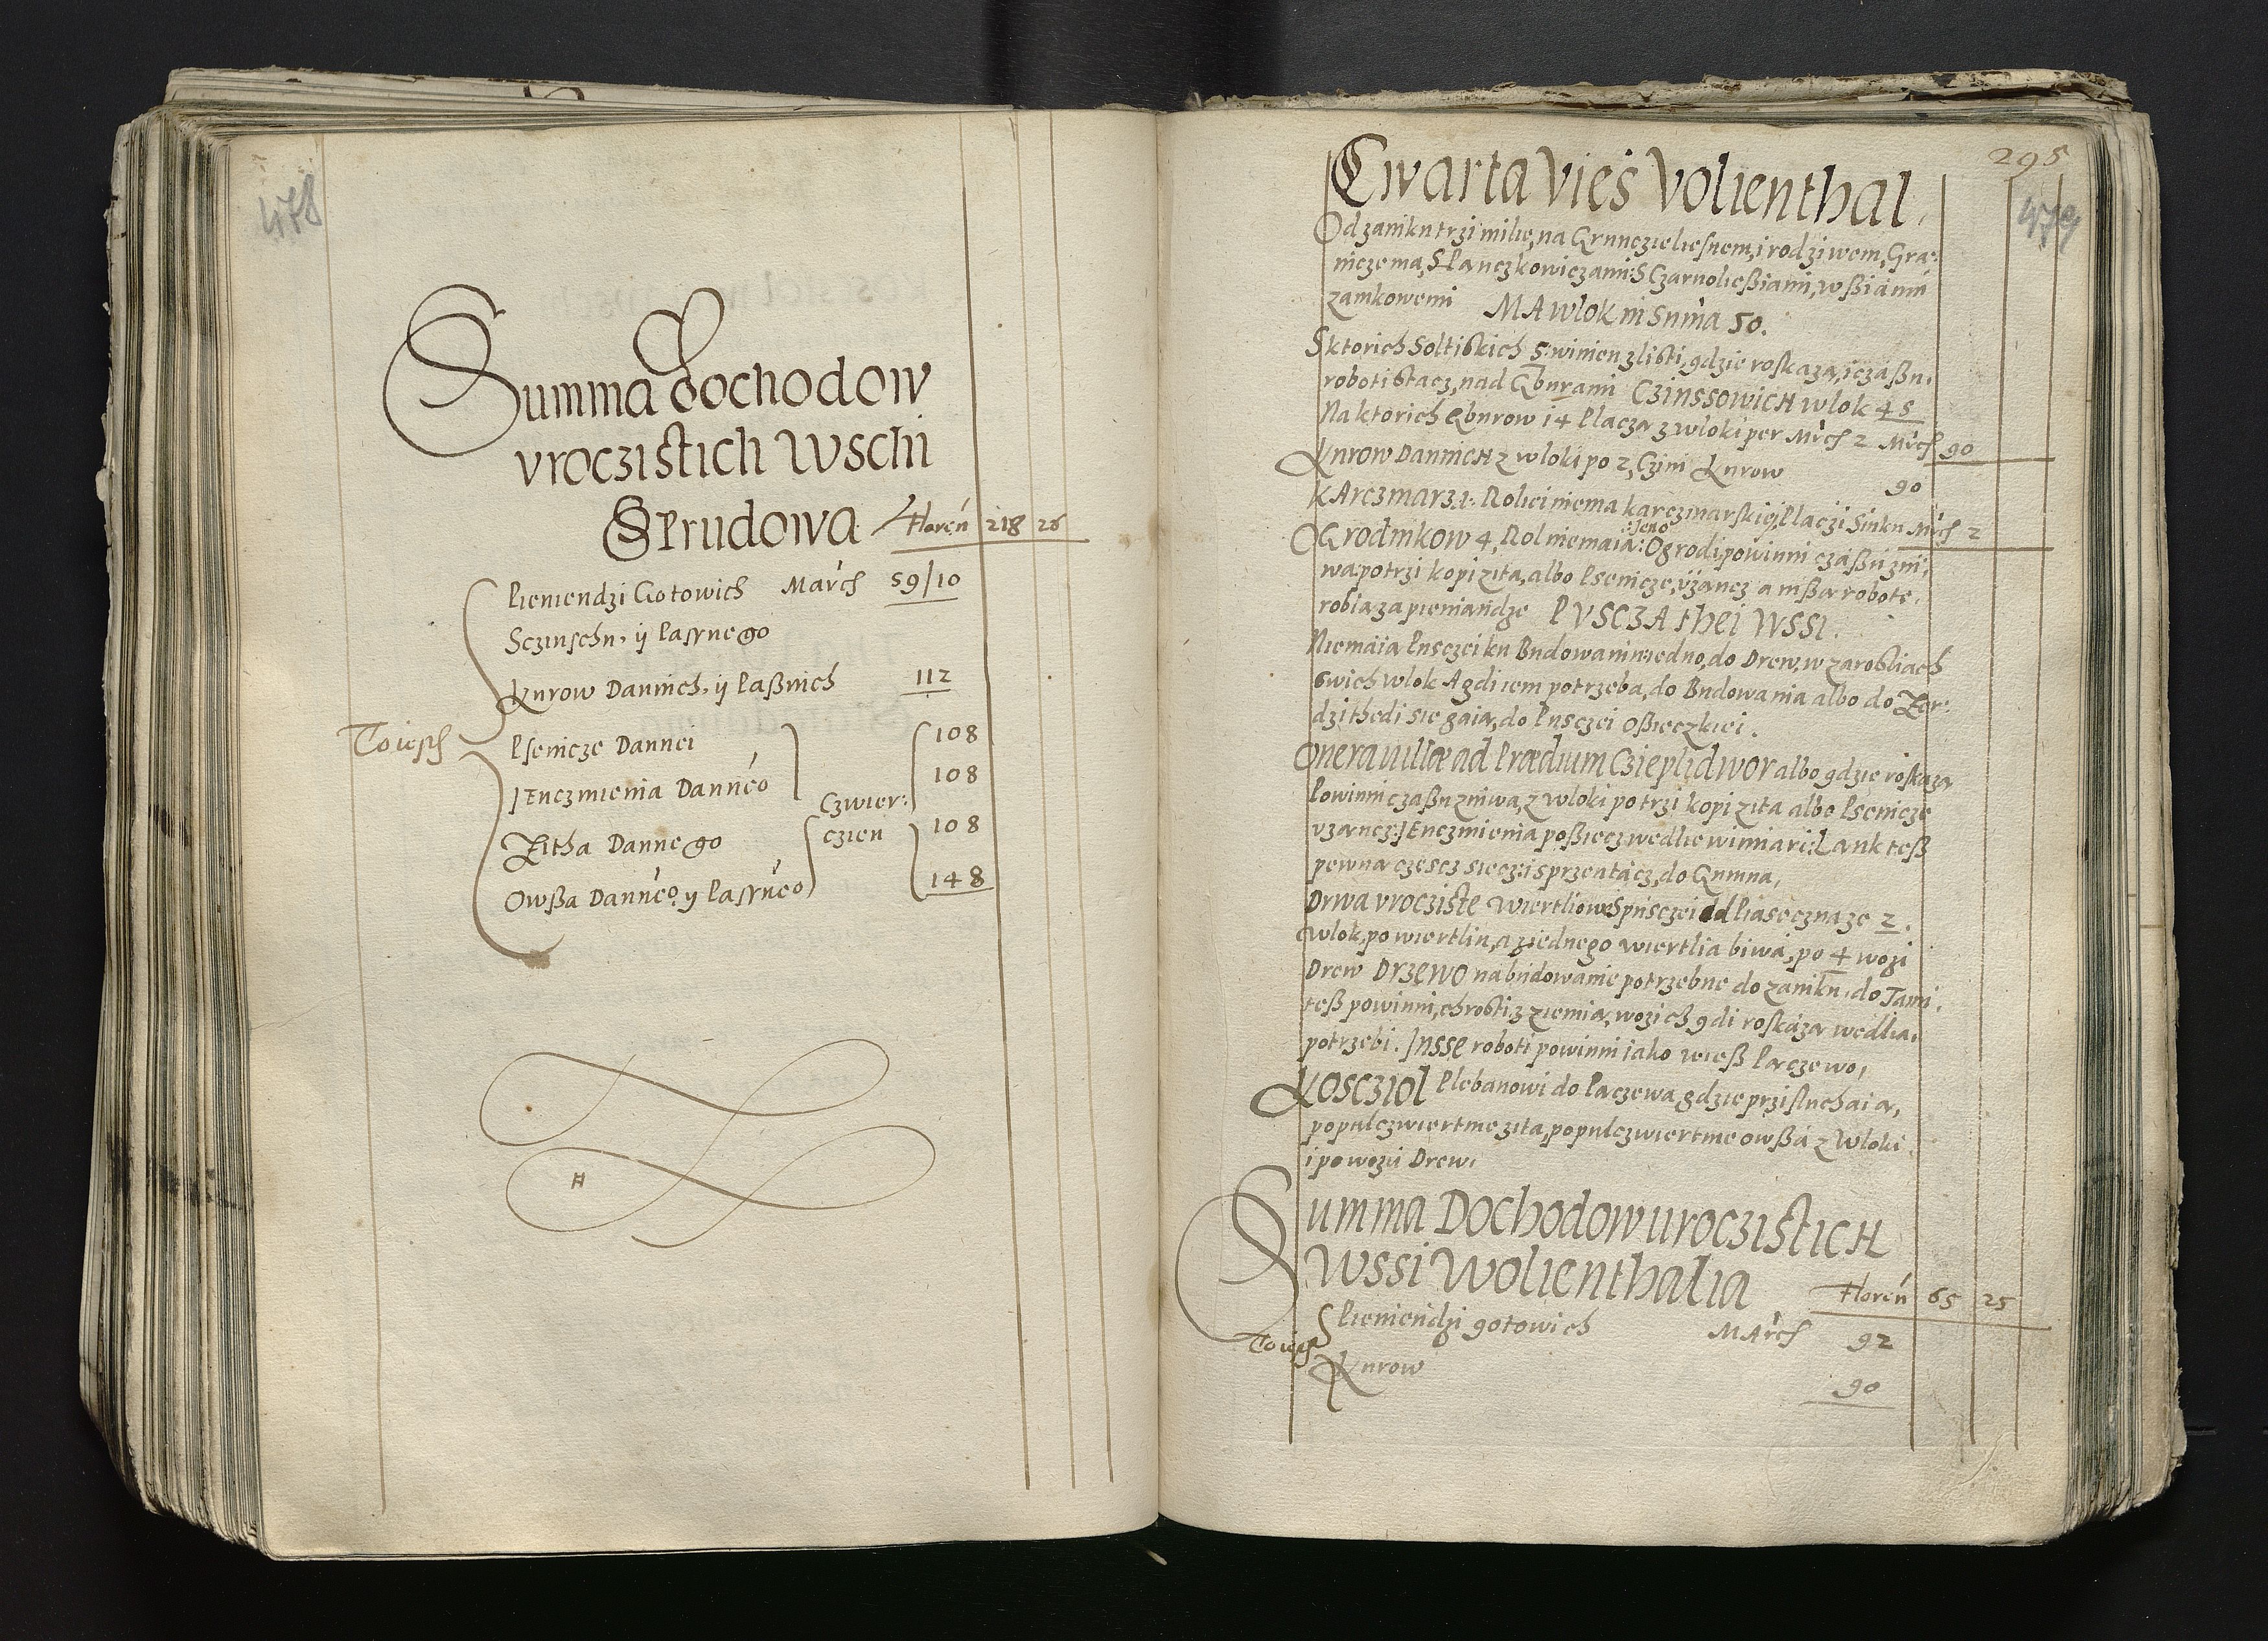 478
Summa dochodow
vroczistich Wschi
S Prudowa Floreń 218 26
Pieniendzi Gotowich March 59/10
Sczinschu, ÿ Passnego
Kurow Dannich, ÿ Paßnich 112
To iest
Psenicze Dannei 108
Jenczmienia Danneo 108
Czwier:
czien
Zitha Dannego 108
Owßa Danneo ÿ Passneo 148
H
295
479
Czwarta Vies Volienthal,
Od zamku trzi milie, na Grunczie liesnem, i rodziwem, Gra:
niczema, S Lanczkowiczami: S Czarnoließiami, w ßiami
zamkowemi MA wlok in Suma 50.
S ktorich Soltiskich 5: winien z listi, gdzie roskaza, i czaßu,
roboti stacz, nad Gburami CzinssowicH wlok 45
Na ktorich Gburow 14 Placza z wloki per Mrch 2 Mrch 90
Kurow DannicH z wloki po 2, Czini Kurow 90
KArczmarz 1: Roliei niema karczmarskiÿ, Placzi Sinku Mrch 2
OGrodnikow 4, Rol niemaia: Jeno Ogrodi, powinni czaßu zni,
wa: potrzi kopi zita, albo Psenicze, vzancz a inßa robote,
robia za pieniandze PVSCZA thei WSSI.
Niemaia Pusczei ku Budowaniu: iedno, do Drew, w zarosliach
swich wlok A gdi iem potrzeba, do Budowania albo do Zer:
dzi thedi sie gaia, do Pusczei Oßieczkiei.
Onera villæ ad Prædium Czieplidwor albo gdzie roskaza,
Powinni czaßu zniwa, z wloki po trzi kopi zita albo Psenicze
vzancz: JEnczmienia poßiecz wedlie wimiari: Lank teß
pewna czescz siecz: i sprzentacz, do Gumna,
Drwa vrocziste Wiertliowe S pusczei od Piasecznaze 2.
wlok, po wiertlin, a z iednego wiertlia biwa, po 4 wozi
Drew DrzEwo na budowanie potrzebne do zamku, do Tami,
teß powinni, chrosti z ziemia, wozich gdi roskaza wedlia,
potrzebi. Jnsse roboti powinni iako wieß Paczewo,
Kosczioł Plebanowi do Paczewa gdzie przislnchaia,
po pulczwiertnie zita, po pulczwiertnie owßa z Wloki
i po wozu Drew,
Summa Dochodow uroczisticH
Wssi Wolienthalia Floreń 65 25
To iest
Pieniendzi gotowich MArch 92
Kurow 90